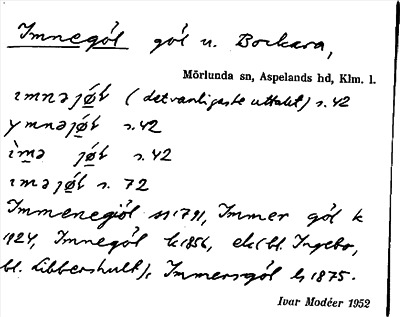 Imnegöl göl u. Bockara,
Mörlunda sn, Aspelands hd, Klm. l.
ımnəjǿl (det vanligaste uttalet) s. 42
ymnəjǿl s. 42
ìmə jǿl s. 42
ıməjǿl s. 72
Immenegiöl 1791, Immer göl k
1924, Imnegöl k 1856, ek (bl. Ingebo,
bl. Libbershult), Immersgöl k 1875.
Ivar Modéer 1952